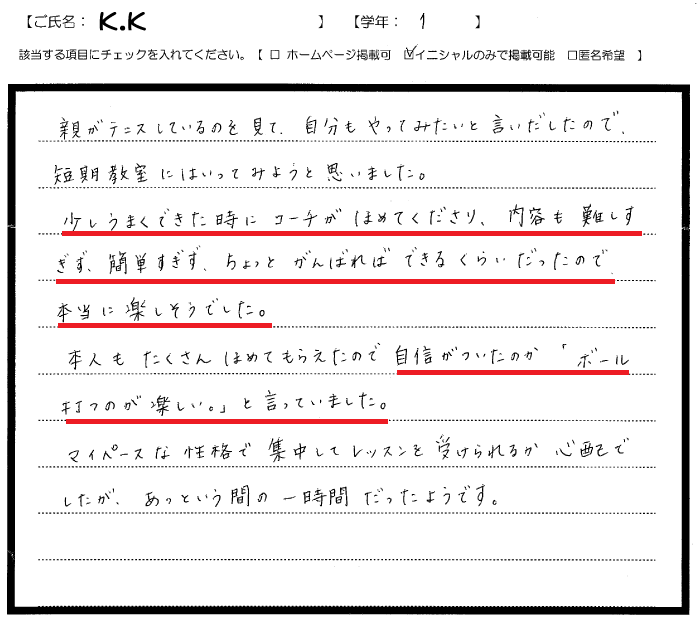 【ご氏名： K.K 】 【学年： 1 】
該当する項目にチェックを入れてください。【 □ ホームページ掲載可 ☑イニシャルのみで掲載可能 □匿名希望 】
親がテニスしているのを見て、自分もやってみたいと言いだしたので、
短期教室にはいってみようと思いました。
少しうまくできた時にコーチがほめてくださり、内容も難しす
ぎず、簡単すぎず、ちょっとがんばればできるくらいだったので、
本当に楽しそうでした。
本人もたくさんほめてもらえたので自信がついたのか「ボール
打つのが楽しい。」と言っていました。
マイペースな性格で集中してレッスンを受けられるか心配で
したが、あっという間の一時間だったようです。